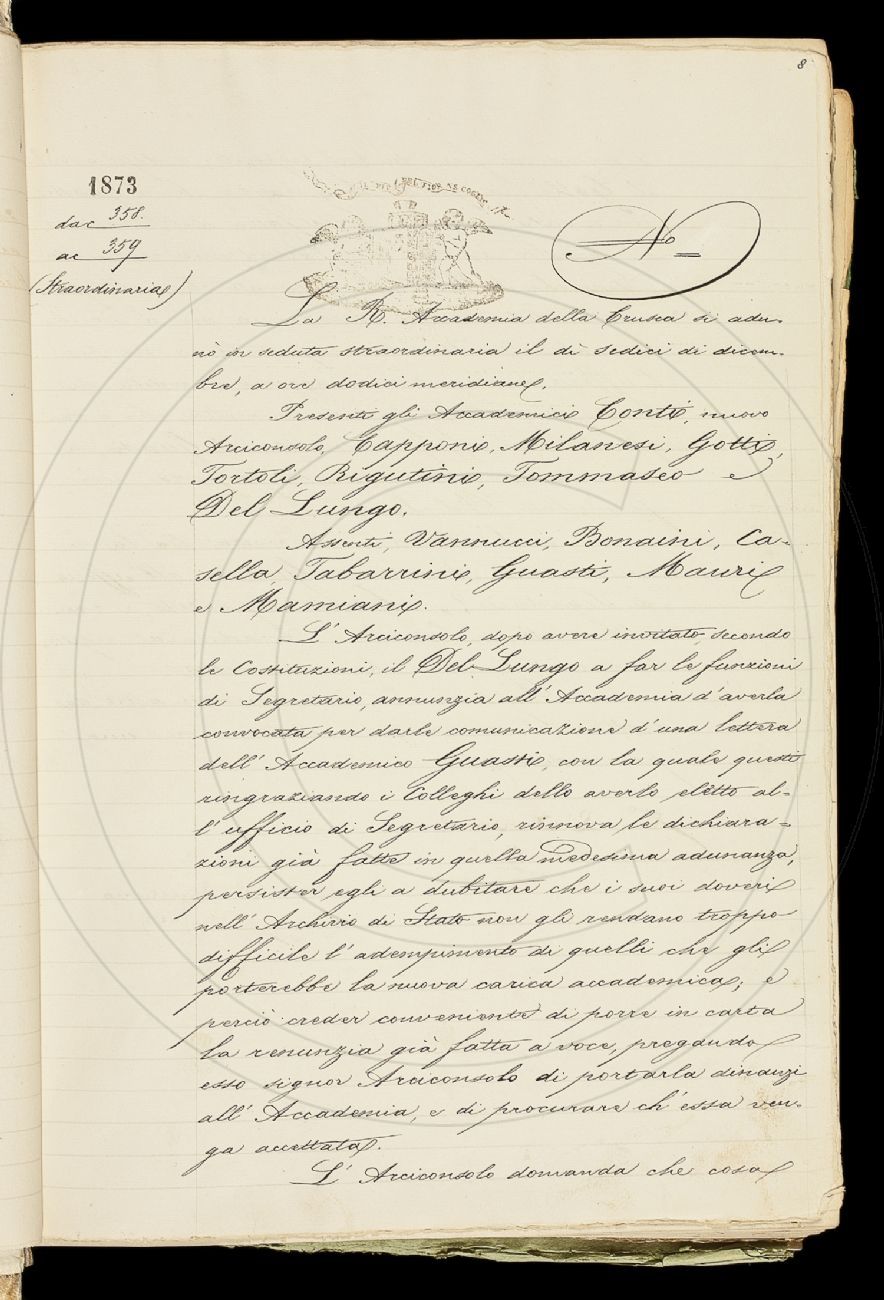 8
1873
da c 358.
a c 359
(Straordinaria)
IL PIÙ BEL FIOR NE COGLIE
N.º =
La R. Accademia della Crusca si adu-
nò in seduta straordinaria il dì sedici di dicem-
bre, a ore dodici meridiane.
Presenti gli Accademici Conti, nuovo
Arciconsolo, Capponi, Milanesi, Gotti,
Tortoli, Rigutini, Tommaseo e
Del Lungo.
Assenti, Vannucci, Bonaini, Ca-
sella, Tabarrini, Guasti, Mauri
e Mamiani.
L'Arciconsolo, dopo avere invitato, secondo
le Costituzioni, il Del Lungo a far le funzioni
di Segretario, annunzia all'Accademia d'averla
convocata per darle comunicazione d'una lettera
dell'Accademico Guasti, con la quale questi
ringraziando i Colleghi dello averlo eletto al-
l'ufficio di Segretario, rinnova le dichiara=
zioni già fatte in quella medesima adunanza,
persister egli a dubitare che i suoi doveri
nell'Archivio di Stato non gli rendano troppo
difficile l'adempimento di quelli che gli
porterebbe la nuova carica accademica; e
perciò creder conveniente di porre in carta
la renunzia già fatta a voce, pregando
esso signor Arciconsolo di portarla dinanzi
all'Accademia, e di procurare ch'essa ven-
ga accettata.
L'Arciconsolo domanda che cosa